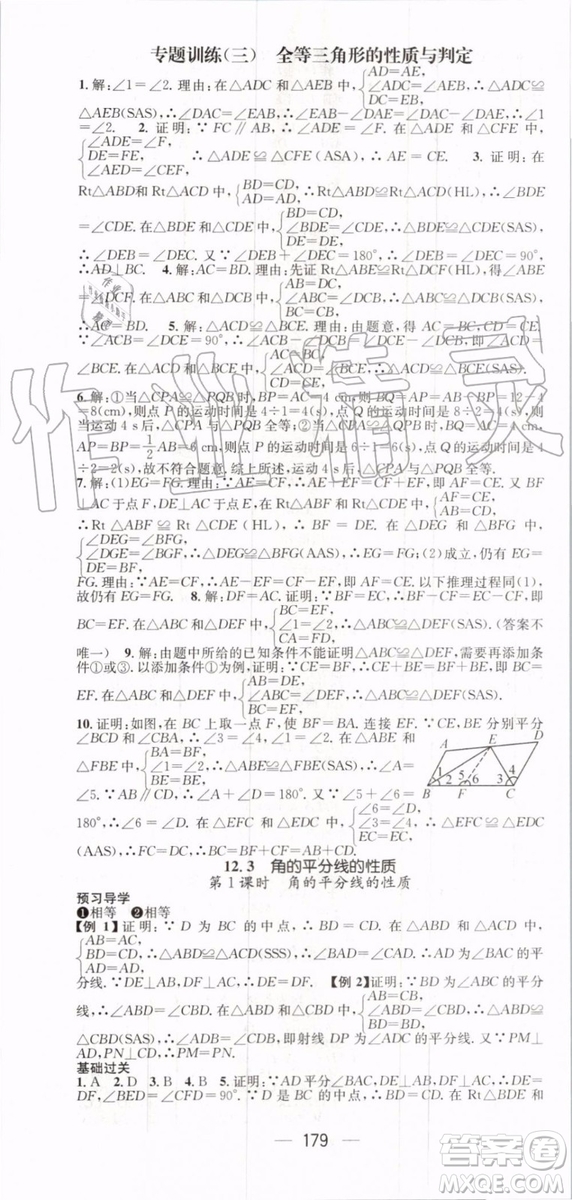 专题训练(三) 全等三角形的性质与判定
AD=AE,
1.解:∠1=∠2.理由:在△ADC和△AEB中,∠A=∠A,∴△ADC≌
AC=AB,
△AEB(SAS),∴∠DAC=∠EAB,∴∠DAC-∠DAE=∠EAB-∠DAE,∴∠1
=∠2. 2.证明:∵FC∥AB,∴∠A=∠FCE.在△ADE和△CFE中,
∠ADE=∠F,
DE=FE, ∴△ADE≌△CFE(ASA),∴AE=CE. 3.证明:在
∠AED=∠CEF,
Rt△ABD和Rt△ACD中,BD=CD, AD=AD, ∴Rt△ABD≌Rt△ACD(HL),∴∠BDE
=∠CDE.在△BDE和△CDE中,BD=CD, ∠BDE=∠CDE, DE=DE, ∴△BDE≌△CDE(SAS),
∴∠DEB=∠DEC.又∵∠DEB+∠DEC=180°,∴∠DEB=∠DEC=90°,
∴AD⊥BC. 4.解:AC=BD.理由:先证Rt△ABE≌Rt△DCF(HL),得∠ABE
=∠DCF.在△ABC和△DCB中, ∴△ABC≌△DCB(SAS),
∴AC=BD. 5.解:△ACD≌△BCE.理由:由题意,得AC=BC,CD=CE,
∵∠ACB=∠DCE=90°, ∴∠ACD=
∠BCE.在△ACD和△BCE中, ∴△ACD≌△BCE(SAS).
6.解:①当△CPA≌△PQB时,BP=AC=4 cm,则BQ=AP=AB-BP=12-4
=8(cm),则点P的运动时间是4÷1=4(s),点Q的运动时间是8÷2=4(s),则
当运动4 s后,△CPA与△PQB全等;②当△CPA≌△QPB时,BQ=AC=4 cm,
AP=BP=1/2AB=6 cm,则点P的运动时间是6÷1=6(s),点Q的运动时间是4
÷2=2(s),故不符合题意.综上所述,运动4 s后,△CPA与△PQB全等.
7.解:(1)EG=FG.证明:∵AE=CF,∴AE+EF=CF+EF,即AF=CE.又∵BF
⊥AC于点F,DE⊥AC于点E,在Rt△ABF和Rt△CDE中,AF=CE, AB=CD,
∴Rt△ABF≌Rt△CDE(HL),∴BF=DE.在△DEG和△BFG中,
∠DEG=∠BFG,
∠DGE=∠BGF, ∴△DEG≌△BFG(AAS),∴EG=FG;(2)成立,仍有EG=
DE=BF,
FG.理由:∵AE=CF,∴AE-EF=CF-EF,即AF=CE.以下推理过程同(1),
故仍有EG=FG. 8.解:DF=AC.证明:∵BF=EC,∴BF+FC=EC+CF,即
BC=EF,
BC=EF.在△ABC和△DEF中,∠1=∠2, ∴△ABC≌△DEF(SAS).(答案不
CA=FD,
唯一) 9.解:由题中所给的已知条件不能证明△ABC≌△DEF,需要再添加条
件①或③.以添加条件①为例,证明:∵CE=BF,∴CE+BE=BF+BE,即BC=
AB=DE,
EF.在△ABC和△DEF中,AC=DF, ∴△ABC≌△DEF(SSS).
BC=EF,
10.证明:如图,在BC上取一点F,使BF=BA.连接EF.∵CE,BE分别平分
∠BCD和∠CBA,∴∠3=∠4,∠1=∠2.在△ABE和
AB=FB,
△FBE中,∠1=∠2, ∴△ABE≌△FBE(SAS),∴∠A=
BE=BE,
∠5.∵AB∥CD,∴∠A+∠D=180°.又∵∠5+∠6=
∠6=∠D,
180°,∴∠6=∠D.在△EFC和△EDC中,∠3=∠4, ∴△EFC≌△EDC
EC=EC,
(AAS),∴FC=CD,∴BC=BF+CF=AB+CD.
A E D
1 2 5 6 3 4
B F C
12.3 角的平分线的性质
第1课时 角的平分线的性质
预习导学
❶相等 ❷相等
【例1】证明:∵D为BC的中点,∴BD=CD.在△ABD和△ACD中,
AB=AC,
BD=CD, ∴△ABD≌△ACD(SSS),∴∠BAD=∠CAD,∴AD为∠BAC的平
AD=AD,
分线.∵DE⊥AB,DF⊥AC,∴DE=DF. 【例2】证明:∵BD为∠ABC的平分
线,∴∠ABD=∠CBD.在△ABD和△CBD中,AB=CB, ∠ABD=∠CBD, BD=BD, ∴△ABD≌
△CBD(SAS),∴∠ADB=∠CDB,即射线DP为∠ADC的平分线.又∵PM⊥
AD,PN⊥CD,∴PM=PN.
基础过关
1.A 2.D 3.B 4.B 5.证明:∵AD平分∠BAC,DE⊥AB,DF⊥AC,∴DE=
DF,∠BED=∠CFD=90°.在Rt△BDE和Rt△CDF中,BD=CD, DE=DF,
179
作业精灵
答案圈
MXQE.COM